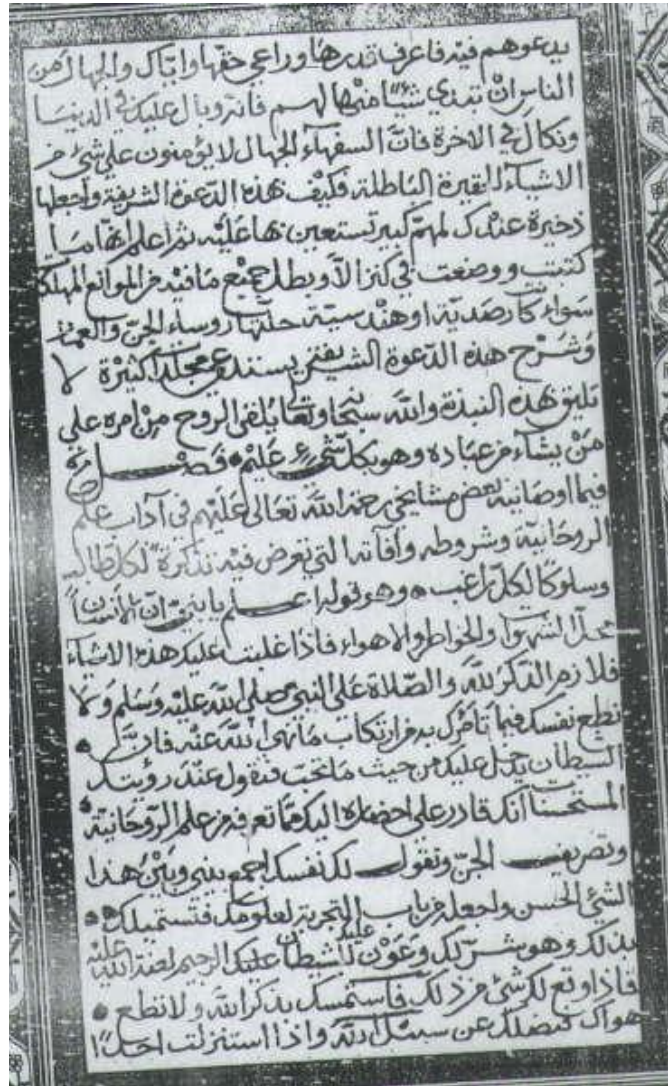 يدعوهم فيه فاعرف قدرها وراعي حقها واياك والجهال من
الناس ان تبدي شيئا منها لهم فانه وبال عليك في الدنيا
ونكال في الاخرة فان السفهاء الجهال لا يؤمنون على شئ من
الاشياء الباطلة فكيف هذه الدعوة الشريفة واجعلها
ذخيرة عندك لمهم كبير تستعين بها عليه ثم اعلم انها ما
كتبت ووضعت في كنز الا وبطل جميع ما فيه من الموانع المهلكة
سواء كانت رصدية او هندسية رؤساء الجن
وشرح هذه الدعوة الشريفة يستدعي مجلدات كثيرة لا
تليق هذه النبذة والله سبحانه وتعالى يلقي الروح من امره على
من يشاء من عباده وهو بكل شئ عليم فصل
فيما اوصاني به بعض مشايخي رحمة الله تعالى عليهم في آداب علم
الروحانية وشروطه وآفاته التي تعرض فيه تذكرة لكل طالب
وسلوكا لكل راغب وهو قوله اعلم يا بني ان الانسان
محل الشهوات والخواطر والاهواء فاذا غلبت عليك هذه الاشياء
فلازم الذكر لله والصلاة على النبي صلى الله عليه وسلم ولا
تطع نفسك فيما تأمرك به من ارتكاب ما نهى الله عنه فان
الشيطان يدخل عليك من حيث ما تحب فتقول عند رؤيتك
المستحسنات انك قادر على احضاره اليك مما تعرفه من علم الروحانية
وتصريف الجن وتقول لك نفسك اجمع بيني وبين هذا
الشئ الحسن واجعله من باب التجربة لعلومك فتستميلك
بذلك وهو شر لك وعون للشيطان عليك الرجيم لعنة الله عليه
فاذا وقع لك شئ من ذلك فاستمسك بذكر الله ولا تطع
هواك فيضلك عن سبيل الله واذا استنزلت احدا